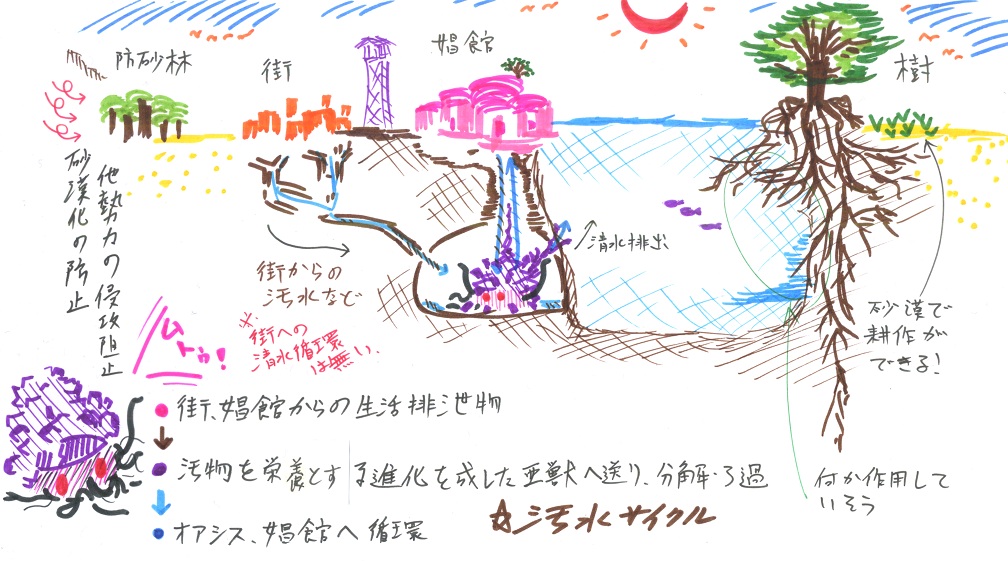 防砂林
街
娼館
樹
他勢力の侵攻阻止
砂漠化の防止
清水排出
街からの
汚水など
※
街への
清水循環
は無い.
砂漠で
耕作が
できる!
ムトゥ!
街、娼館からの生活排泄物
汚物を栄養とする進化を成した亜獣へ送り、分解・ろ過
オアシス、娼館へ循環
☆汚水サイクル
何か作用して
いそう